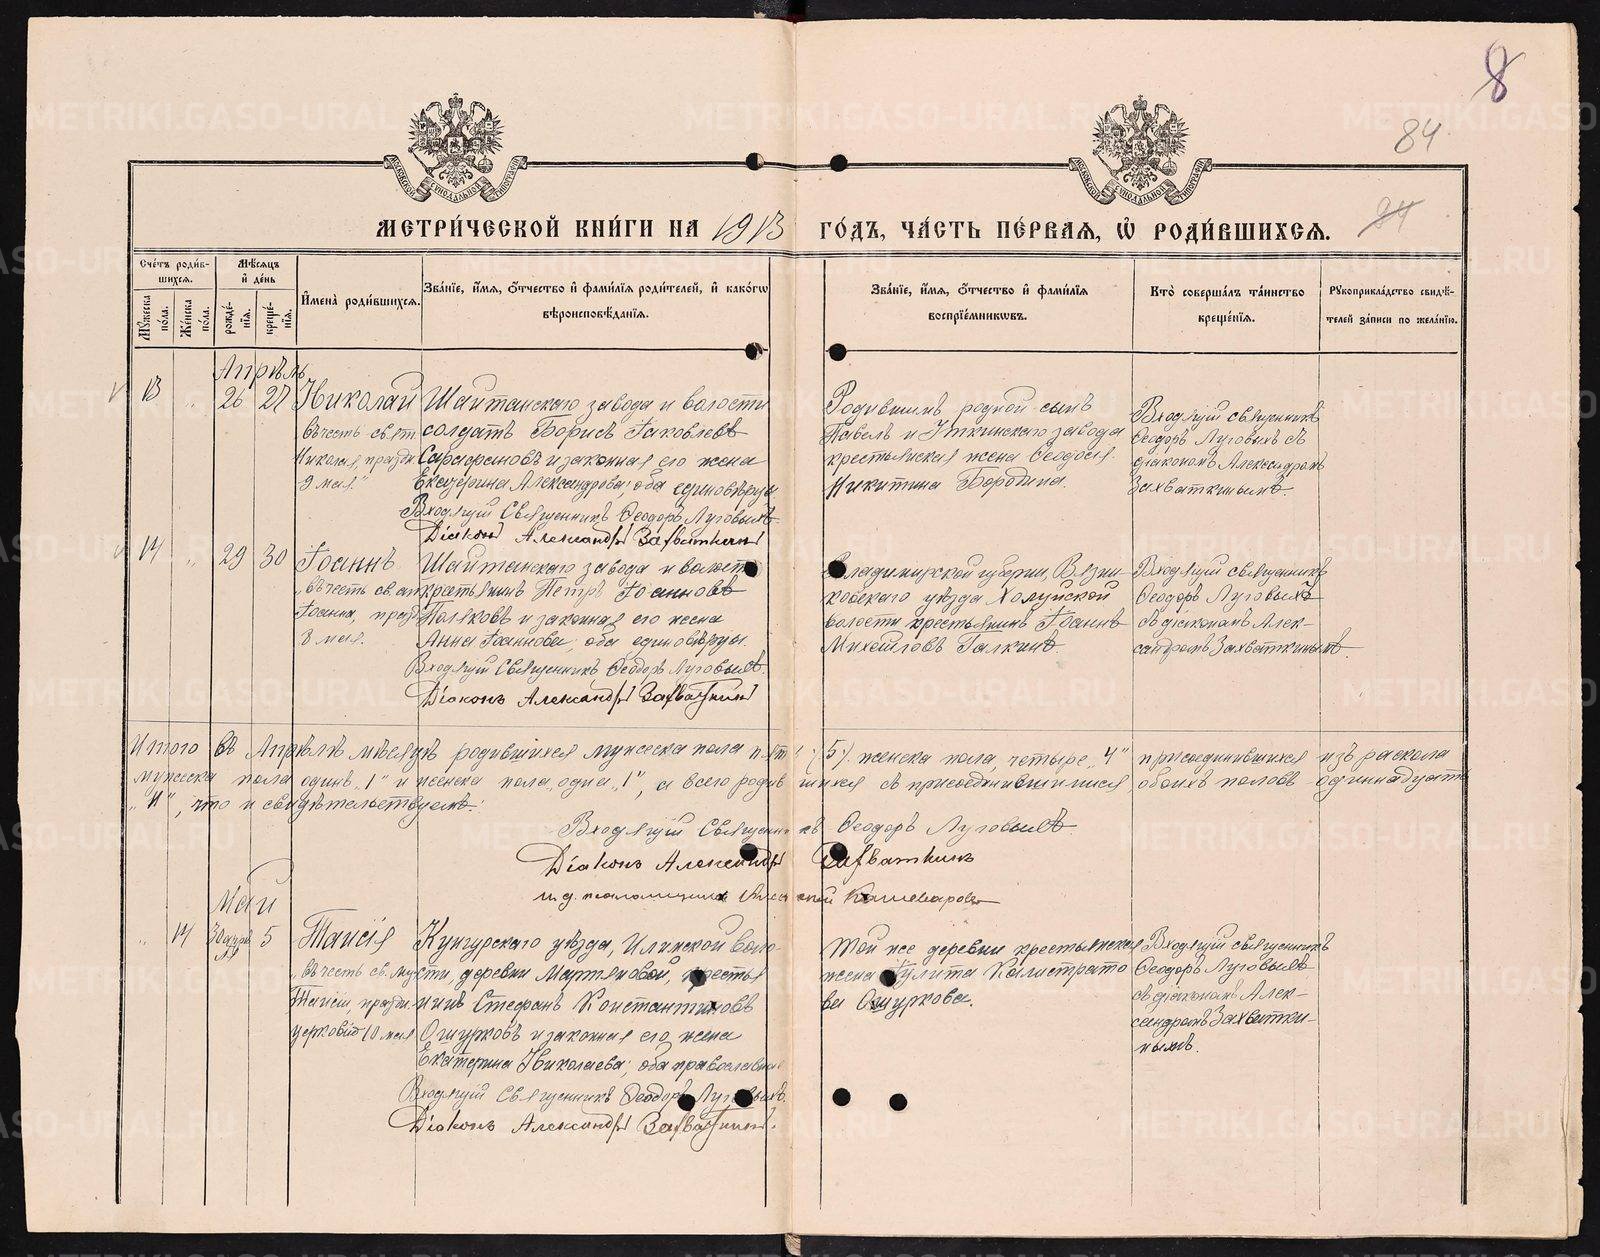 8
84
МЕТРИ́ЧЕСКОЙ КНИ́ГИ НА 1913 ГО́ДЪ, ЧА́СТЬ ПЕ́РВАЯ, Ѡ҆ РОДИ́ВШИХСЯ.
84
Сче́тъ роди́в-
шихся.
Мꙋжеска по́ла.
Же́нска по́ла.
Мѣ́сяцъ
и҆ де́нь
рожде́-
нїя.
креще́-
нїя.
И҆мена̀ роди́вшихся.
Зва́нїе, и҆́мя, ѻ҆́тчество и҆ фами́лїя роди́телей, и҆ како́гѡ
вѣроисповѣ́данїя.
Зва́нїе, и҆́мя, ѻ҆́тчество и҆ фами́лїя
воспрїе́мникѡвъ.
Кто̀ соверша́лъ та́инство
креще́нїя.
Рꙋкоприкла́дство свидѣ́-
телей за́писи по жела́нїю.
Апрѣль
13 „ 26 27 Николай
въ честь св.
Николая, праздн.
9 мая."
Шайтанскаго завода и волости
солдатъ Борисъ Іаковлевъ
Сарафановъ и законная его жена
Екатерина Александрова; оба единовѣрцы.
Входящій Священникъ Ѳеодоръ Луговыхъ
Діаконъ Александръ Захваткинъ
Родившимъ родной сынъ
Павелъ и Уткинскаго завода
крестьянская жена Ѳеодосія
Никитина Бородина.
Входящій священникъ
Ѳеодоръ Луговыхъ съ
діакономъ Александромъ
Захваткинымъ.
14 „ 29 30 Іоаннъ
въ честь св. ап.
Іоанна, празд.
8 мая.
Шайтанскаго завода и волости
крестьянинъ Петръ Іоанновъ
Поляковъ и законная его жена
Анна Іоаннова; оба единовѣрцы.
Входящій Священникъ Ѳеодоръ Луговыхъ
Діаконъ Александръ Захваткинъ
Владимірской губерніи, Вязни-
ковскаго уѣзда Холуйской
волости крестьянинъ Іоаннъ
Михайловъ Галкинъ.
Входящій священникъ
Ѳеодоръ Луговыхъ
съ діакономъ Алек-
сандромъ Захваткинымъ.
Итого въ Апрѣлѣ мѣсяцѣ родившихся мужеска пола пять (5), женска пола, четыре „4" присоединившихся изъ раскола
мужеска пола одинъ „1" и женска пола, одна „1", а всего родившихся съ присоединившимися обоихъ половъ одиннадцать
„11", что и свидѣтельствуемъ:
Входящій Священникъ Ѳеодоръ Луговыхъ
Діаконъ Александръ Захваткинъ
и. д. псаломщика Кашеваровъ
Май
„ 14 30 апрѣля 5 Таисія
„въ честь св.
Таисіи, праздн.
церковію 10 мая
Кунгурскаго уѣзда, Илимской воло-
сти деревни Мартяновой, крестья
нинъ Стефанъ Константиновъ
Ошурковъ и законная его жена
Екатерина Николаева; оба православные
Входящій Священникъ Ѳеодоръ Луговыхъ.
Діаконъ Александръ Захваткинъ.
Той же деревни крестьянская
жена Іулита Калистрато
ва Ошуркова.
Входящій священникъ
Ѳеодоръ Луговыхъ
съ діакономъ Алек-
сандромъ Захватки-
нымъ.